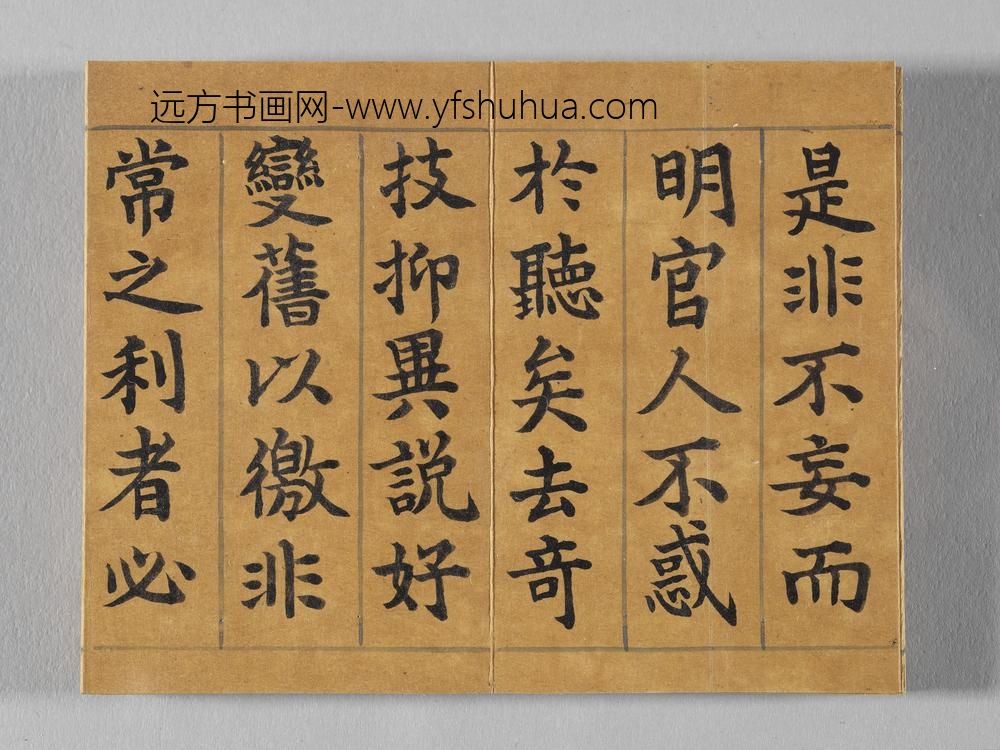 远方书画网-www.yfshuhua.com
是非不妄而
明官人不惑
於聽矣去奇
技抑異説好
變舊以徼非
常之利者必